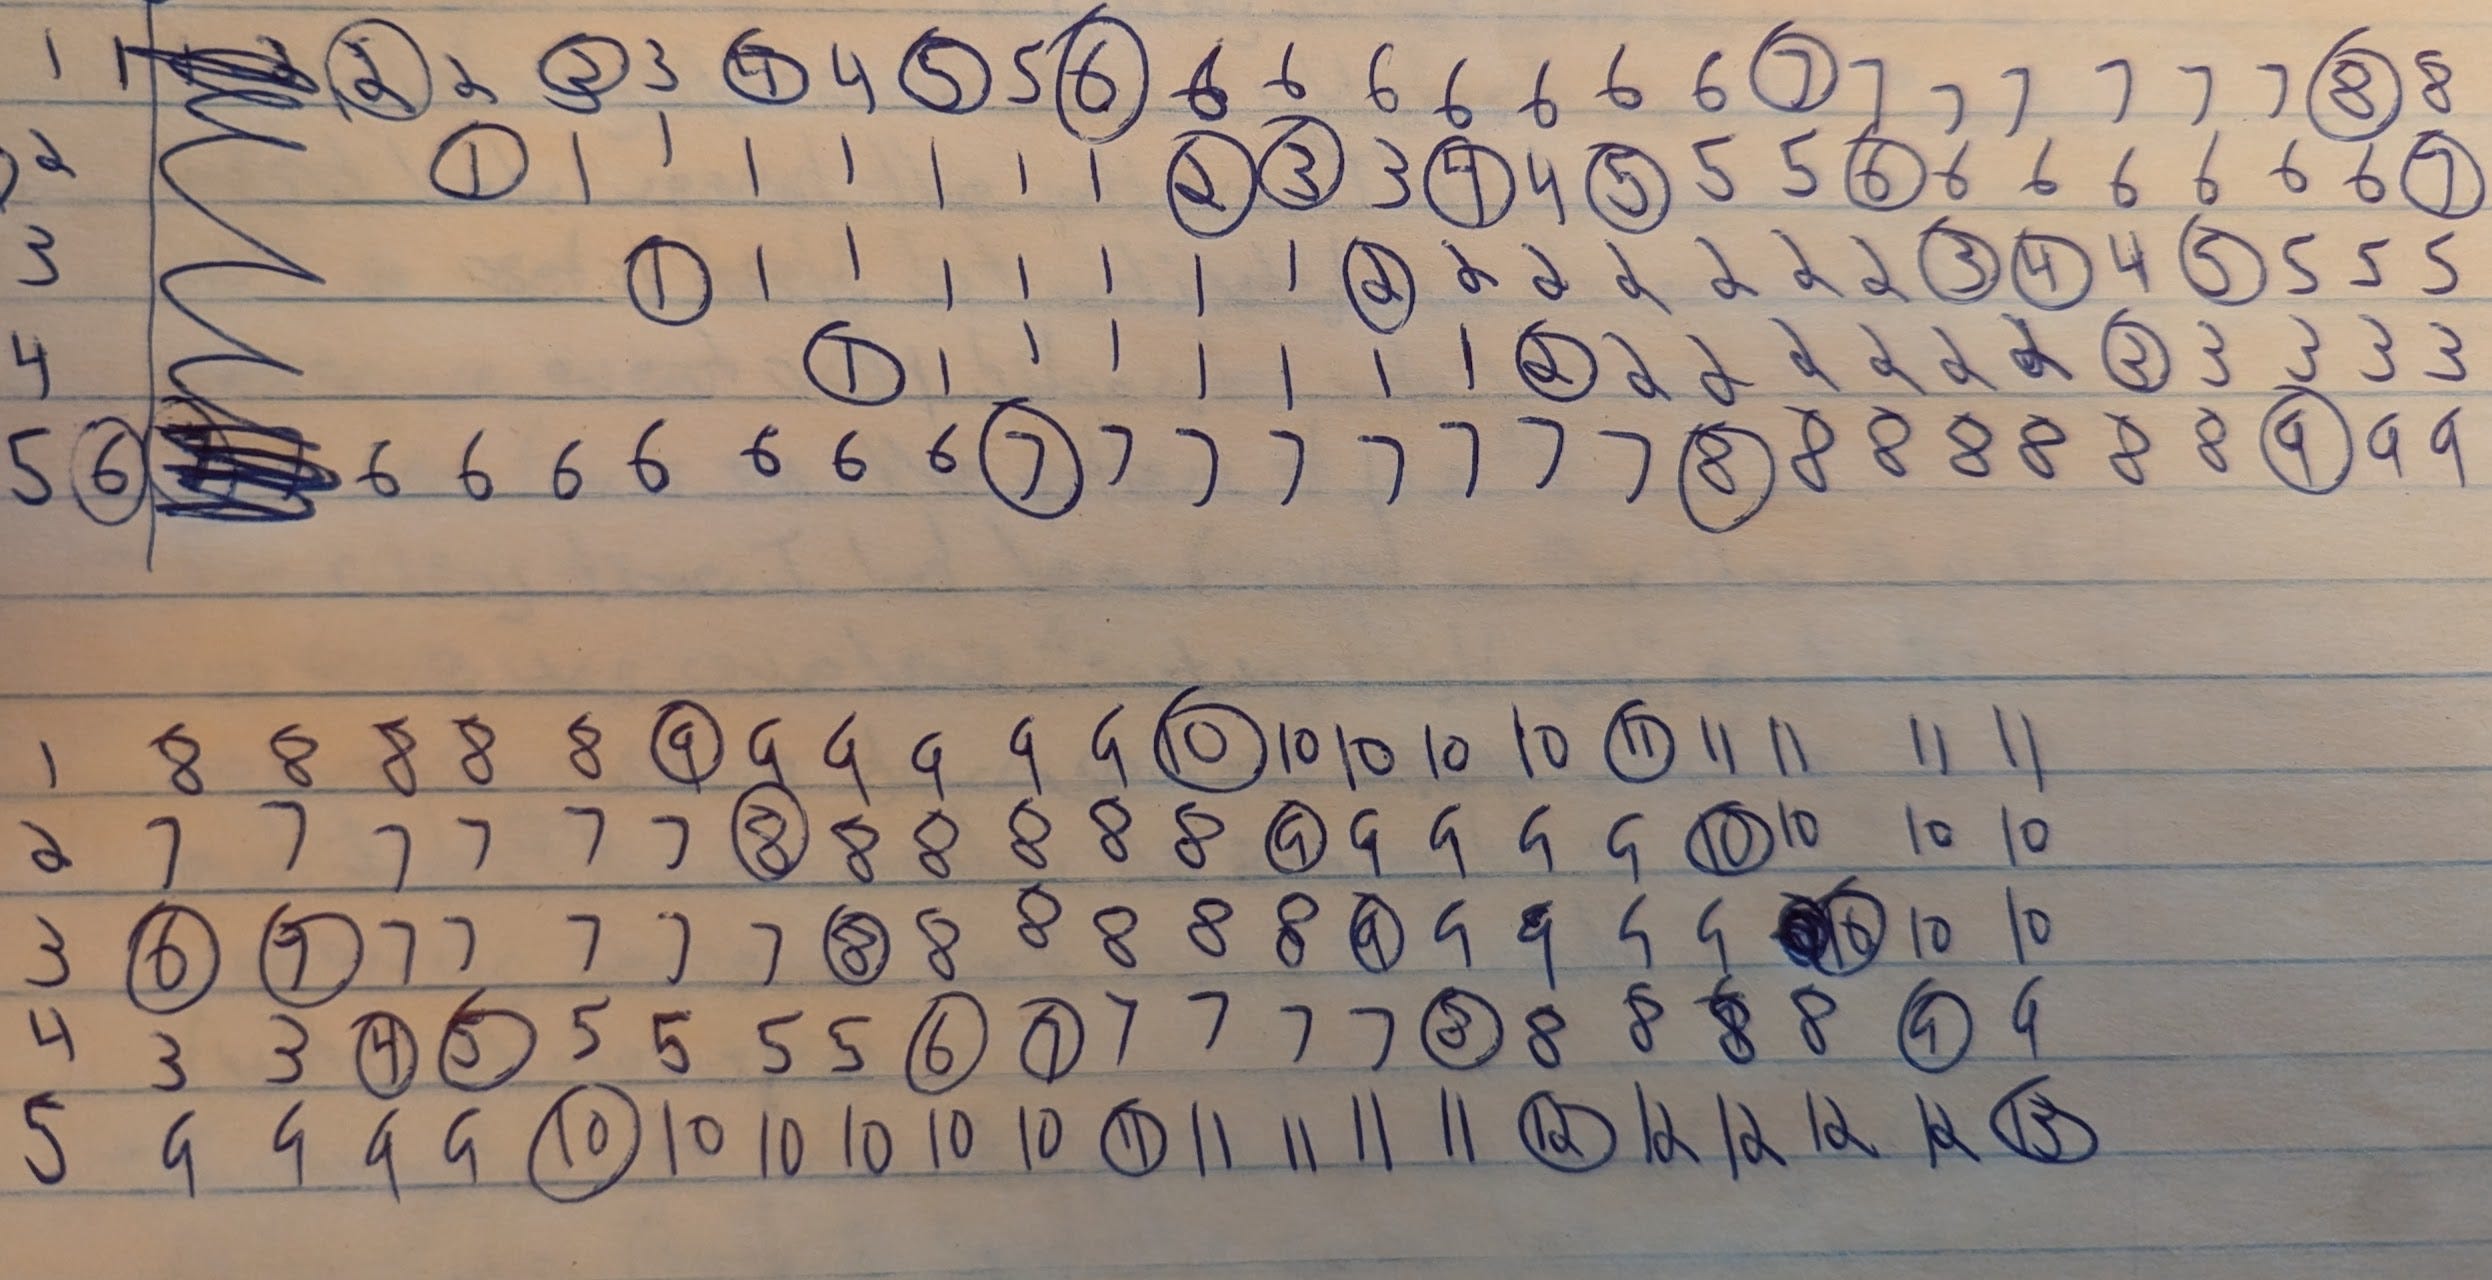 1 1 2 2 3 3 4 4 5 5 6 6 6 6 6 6 6 6 7 7 7 7 7 7 7 8 8
2 1 1 1 1 1 1 1 1 2 3 3 4 4 5 5 5 6 6 6 6 6 6 6 7
3 1 1 1 1 1 1 1 1 2 2 2 2 2 2 2 3 4 4 5 5 5 5
4 1 1 1 1 1 1 1 1 2 2 2 2 2 2 2 3 3 3 3 3
5 6 6 6 6 6 6 6 6 7 7 7 7 7 7 7 7 8 8 8 8 8 8 8 9 9 9
1 8 8 8 8 8 9 9 9 9 9 9 10 10 10 10 10 11 11 11 11 11
2 7 7 7 7 7 7 8 8 8 8 8 8 9 9 9 9 9 10 10 10 10
3 6 7 7 7 7 7 7 8 8 8 8 8 8 9 9 9 9 9 10 10 10
4 3 3 4 5 5 5 5 5 6 7 7 7 7 7 8 8 8 8 8 9 9
5 9 9 9 9 10 10 10 10 10 10 11 11 11 11 11 12 12 12 12 12 13